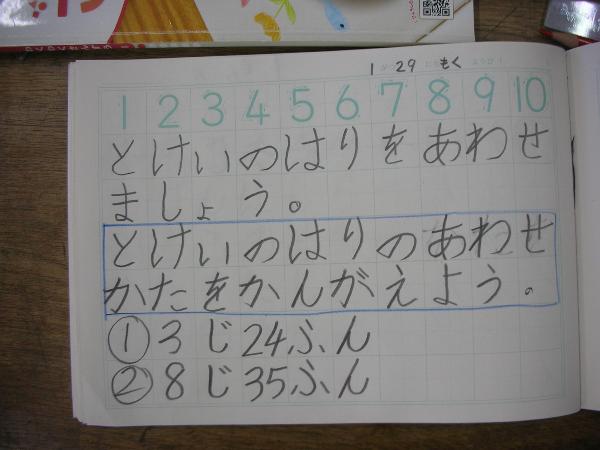 1 29 もく
1 2 3 4 5 6 7 8 9 10
とけいのはりをあわせ
ましょう。
とけいのはりのあわせ
かたをかんがえよう。
① 3じ24ふん
② 8じ35ふん